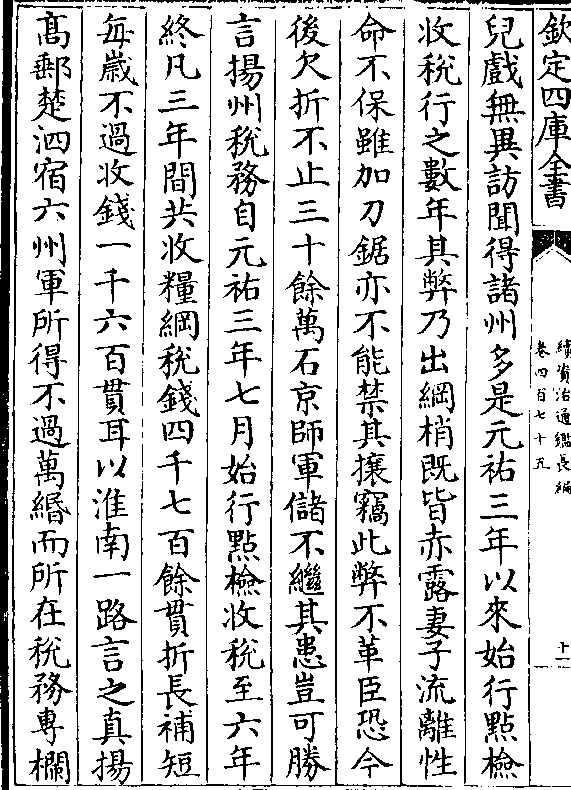 欽定四庫全書
續資治通鑑長編
卷四百七十五
十一
兒戲無異訪聞得諸州多是元祐三年以來始行㸃檢
收稅行之數年其弊乃出綱梢既皆赤露妻子流離性
命不保雖加刀鋸亦不能禁其攘竊此弊不革臣恐今
後欠折不止三十餘萬石京師軍儲不繼其患豈可勝
言揚州稅務自元祐三年七月始行㸃檢收稅至六年
終凡三年間共收糧綱稅錢四千七百餘貫折長補短
每歲不過收錢一千六百貫耳以淮南一路言之真揚
髙郵楚泗宿六州軍所得不過萬緡而所在稅務專欄